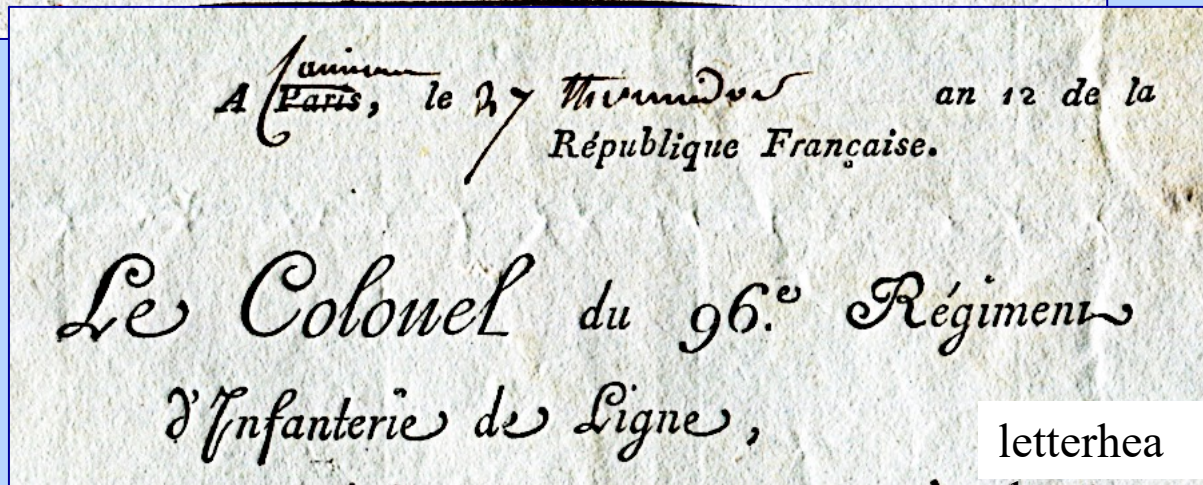 A Paris, le 27 thermidor an 12 de la
République Française.
Le Colonel du 96.e Régiment
d'Infanterie de Ligne,
letterhea